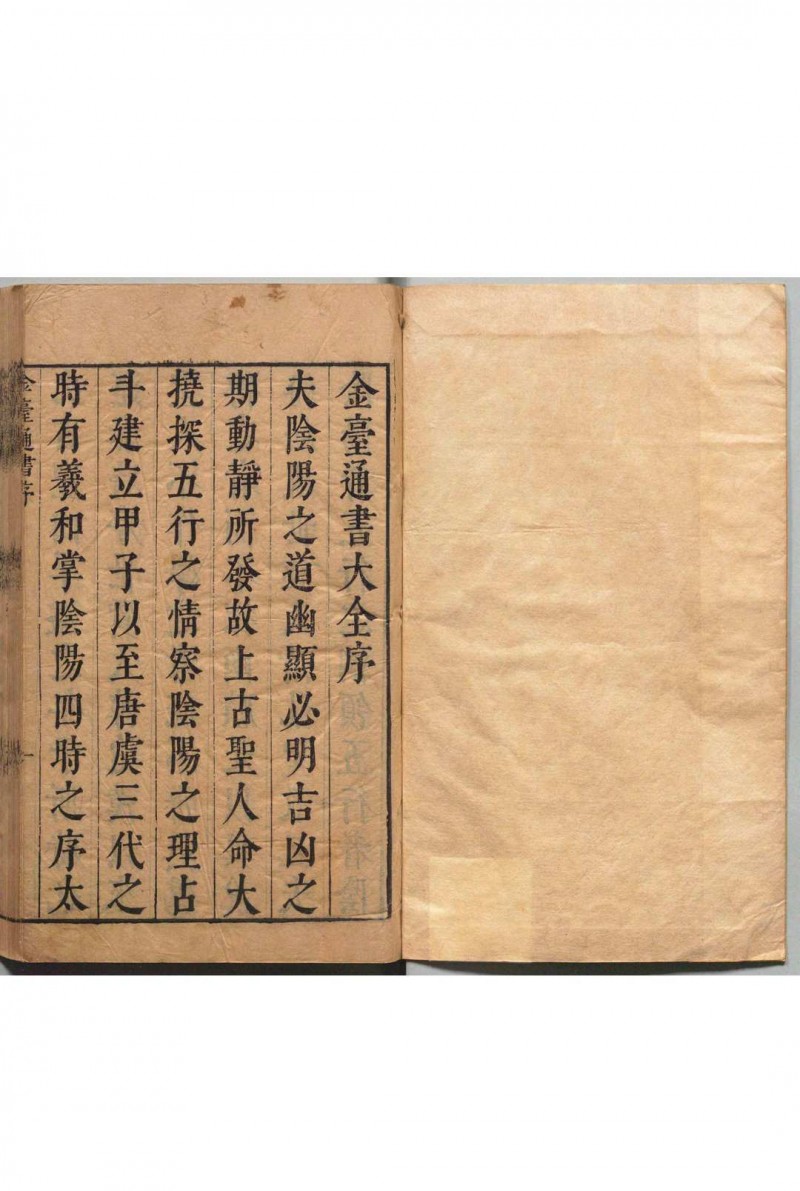 金臺通書大全序
夫陰陽之道幽顯必明吉凶之
期動靜所發故上古聖人命大
撓探五行之情察陰陽之理占
斗建立甲子以至唐虞三代之
時有羲和掌陰陽四時之序太
金臺通書序
一